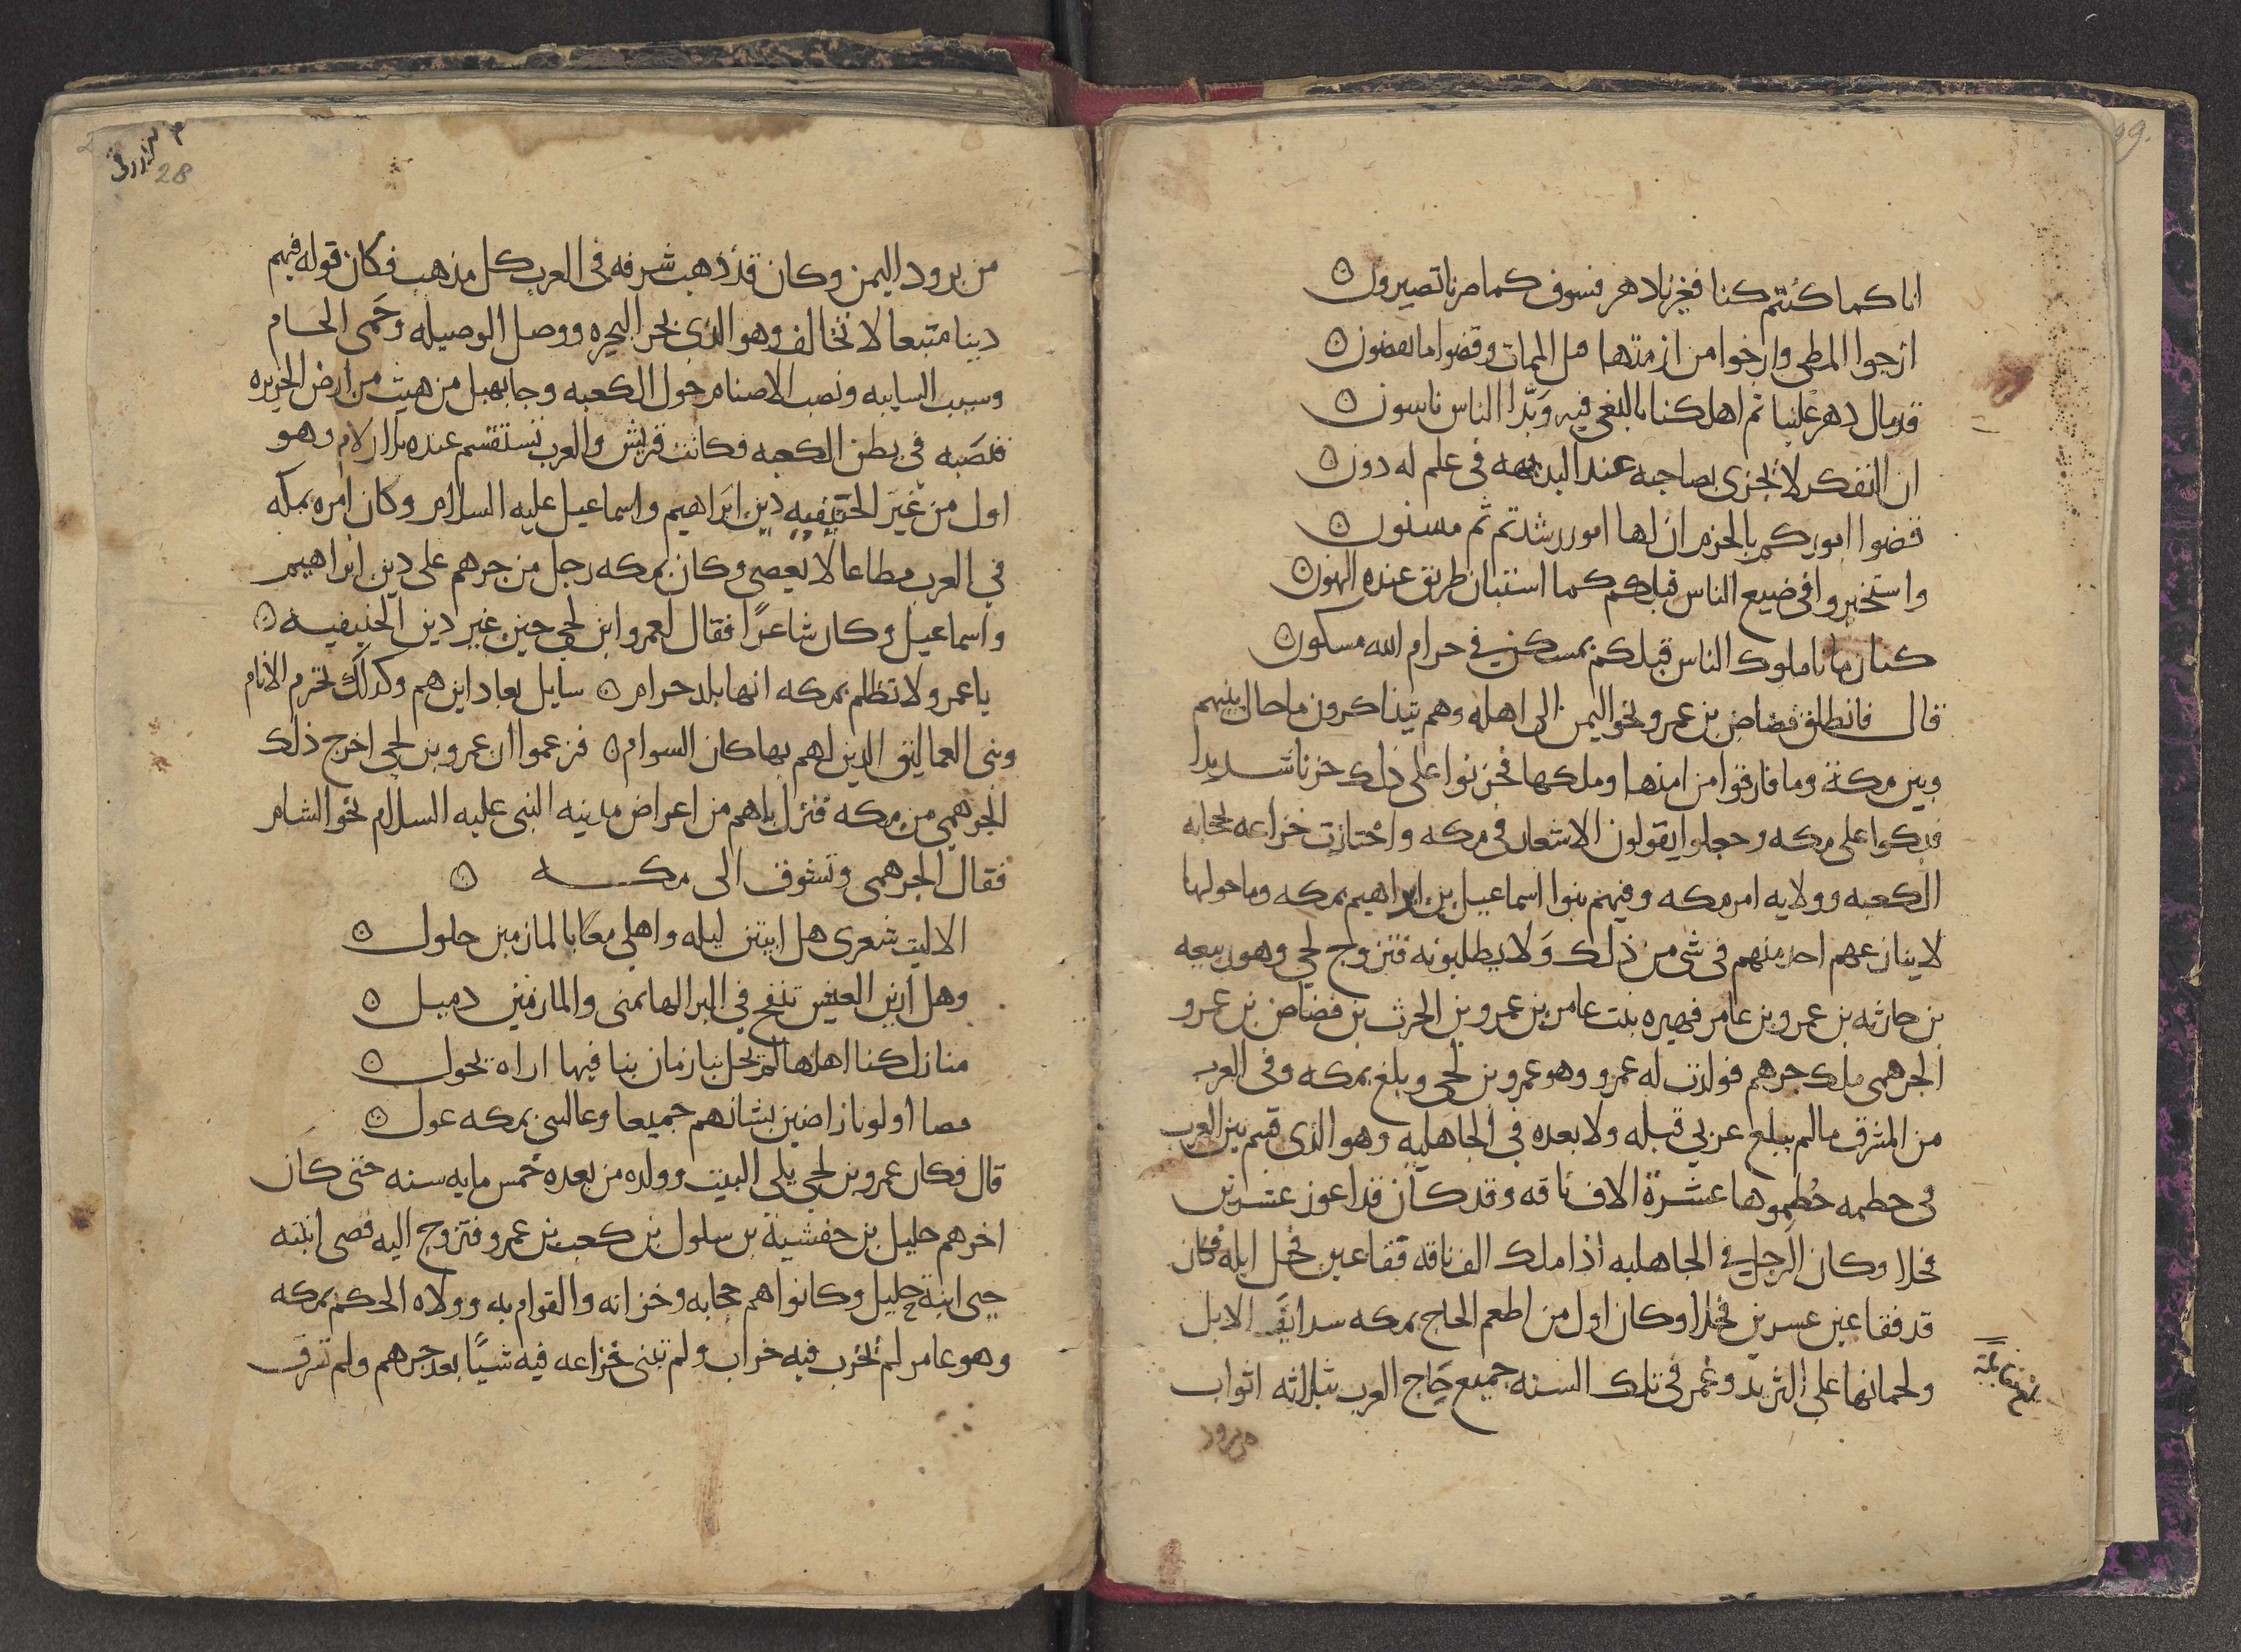 99.
انا كما كنتم كنا فغيرنا دهر فسوف كما صرنا تصيرون
ازجوا المطي وارخوا من ازمتها قبل الممات وقضوا ما تقضون
قد مال دهر علينا ثم اهلكنا بالبغي فيه وبذا الناس ناسون
ان التفكر لا يجزى بصاحبه عند البديهه في علم له دون
قضوا اموركم بالحزم ان لها امور رشدتم ثم مسنون
واستخبروا في صنيع الناس قبلكم كما استبان طريق عنده الهون
كنا زمانا ملوك الناس قبلكم بمسكن في حرام الله مسكون
قال فانطلق مضاض بن عمرو نحو اليمن الى اهله وهم يتذاكرون ما حال بينهم
وبين مكة وما فارقوا من امنها وملكها فحزنوا على ذلك حزنا شديدا
فبكوا على مكه وجعلوا يقولون الاشعار في مكه واحتازت خزاعه بحجابه
الكعبه وولايه امر مكه وفيهم بنوا اسماعيل بن ابراهيم بمكه وما حولها
لا ينازعهم احد منهم في شي من ذلك ولا يطلبونه فتزوج لحي وهو ربيعه
بن حارثه بن عمرو بن عامر فهيره بنت عامر بن عمرو بن الحرث بن مضاض بن عمرو
الجرهمي ملك جرهم فولدت له عمرو وهو عمرو بن لحي وبلغ بمكه وفي العرب
من الشرف ما لم يبلغ عربي قبله ولا بعده في الجاهليه وهو الذي قسم بين العرب
في حطمه حطموها عشرة الاف ناقه وقد كان قد اعور عشرين
فحلا وكان الرجل في الجاهليه اذا ملك الف ناقه فقا عين فحل ابله فكان
قد فقا عين عشرين فحلا وكان اول من اطعم الحاج بمكه سدايف الابل
ولحمانها على الثريد وعمر في تلك السنه جميع حاج العرب بثلاثه اثواب
من برود
28
من برود اليمن وكان قد ذهب شرفه في العرب كل مذهب فكان قوله فيهم
دينا متبعا لا يخالف وهو الذي بحر البحيره ووصل الوصيله وحمى الحام
وسيب السايبه ونصب الاصنام حول الكعبه وجا بهبل من هيت من ارض الجزيره
فنصبه في بطن الكعبه فكانت قريش والعرب تستقسم عنده بالازلام وهو
اول من غير الحنيفيه دين ابراهيم واسماعيل عليه السلام وكان امره بمكه
في العرب مطاعا لا يعصى وكان بمكه رجل من جرهم على دين ابراهيم
واسماعيل وكان شاعرا فقال لعمرو ابن لحي حين غير دين الحنيفيه
يا عمرو لا تظلم بمكه انها بلد حرام سايل بعاد اين هم وكذلك تخترم الانام
وبني العماليق الذين لهم بها كان السوام فزعموا ان عمرو بن لحي اخرج ذلك
الجرهمي من مكه فنزل باهم من اعراض مدينه النبي عليه السلام نحو الشام
فقال الجرهمي وتشوق الى مكه
الا ليت شعري هل ابيتن ليله واهلي معا بالمازمين حلول
وهل ارين العيس تنفخ في البرا لها بمنى والمازمين دميل
منازل كنا اهلها لم يحل بنا زمان بنا فيها اراه يحول
مضا اولونا راضين بشانهم جميعا وغالتني بمكه غول
قال فكان عمرو بن لحي يلي البيت وولده من بعده خمس مايه سنه حتى كان
اخرهم حليل بن حفشية بن سلول بن كعب بن عمرو فتزوج اليه قصى ابنته
حبى ابنة حليل وكانوا هم حجابه وخزانه والقوام به وولاه الحكم بمكه
وهو عامر لم يخرب فيه خراب ولم تبنى خزاعه فيه شيًا بعد جرهم ولم تسرق